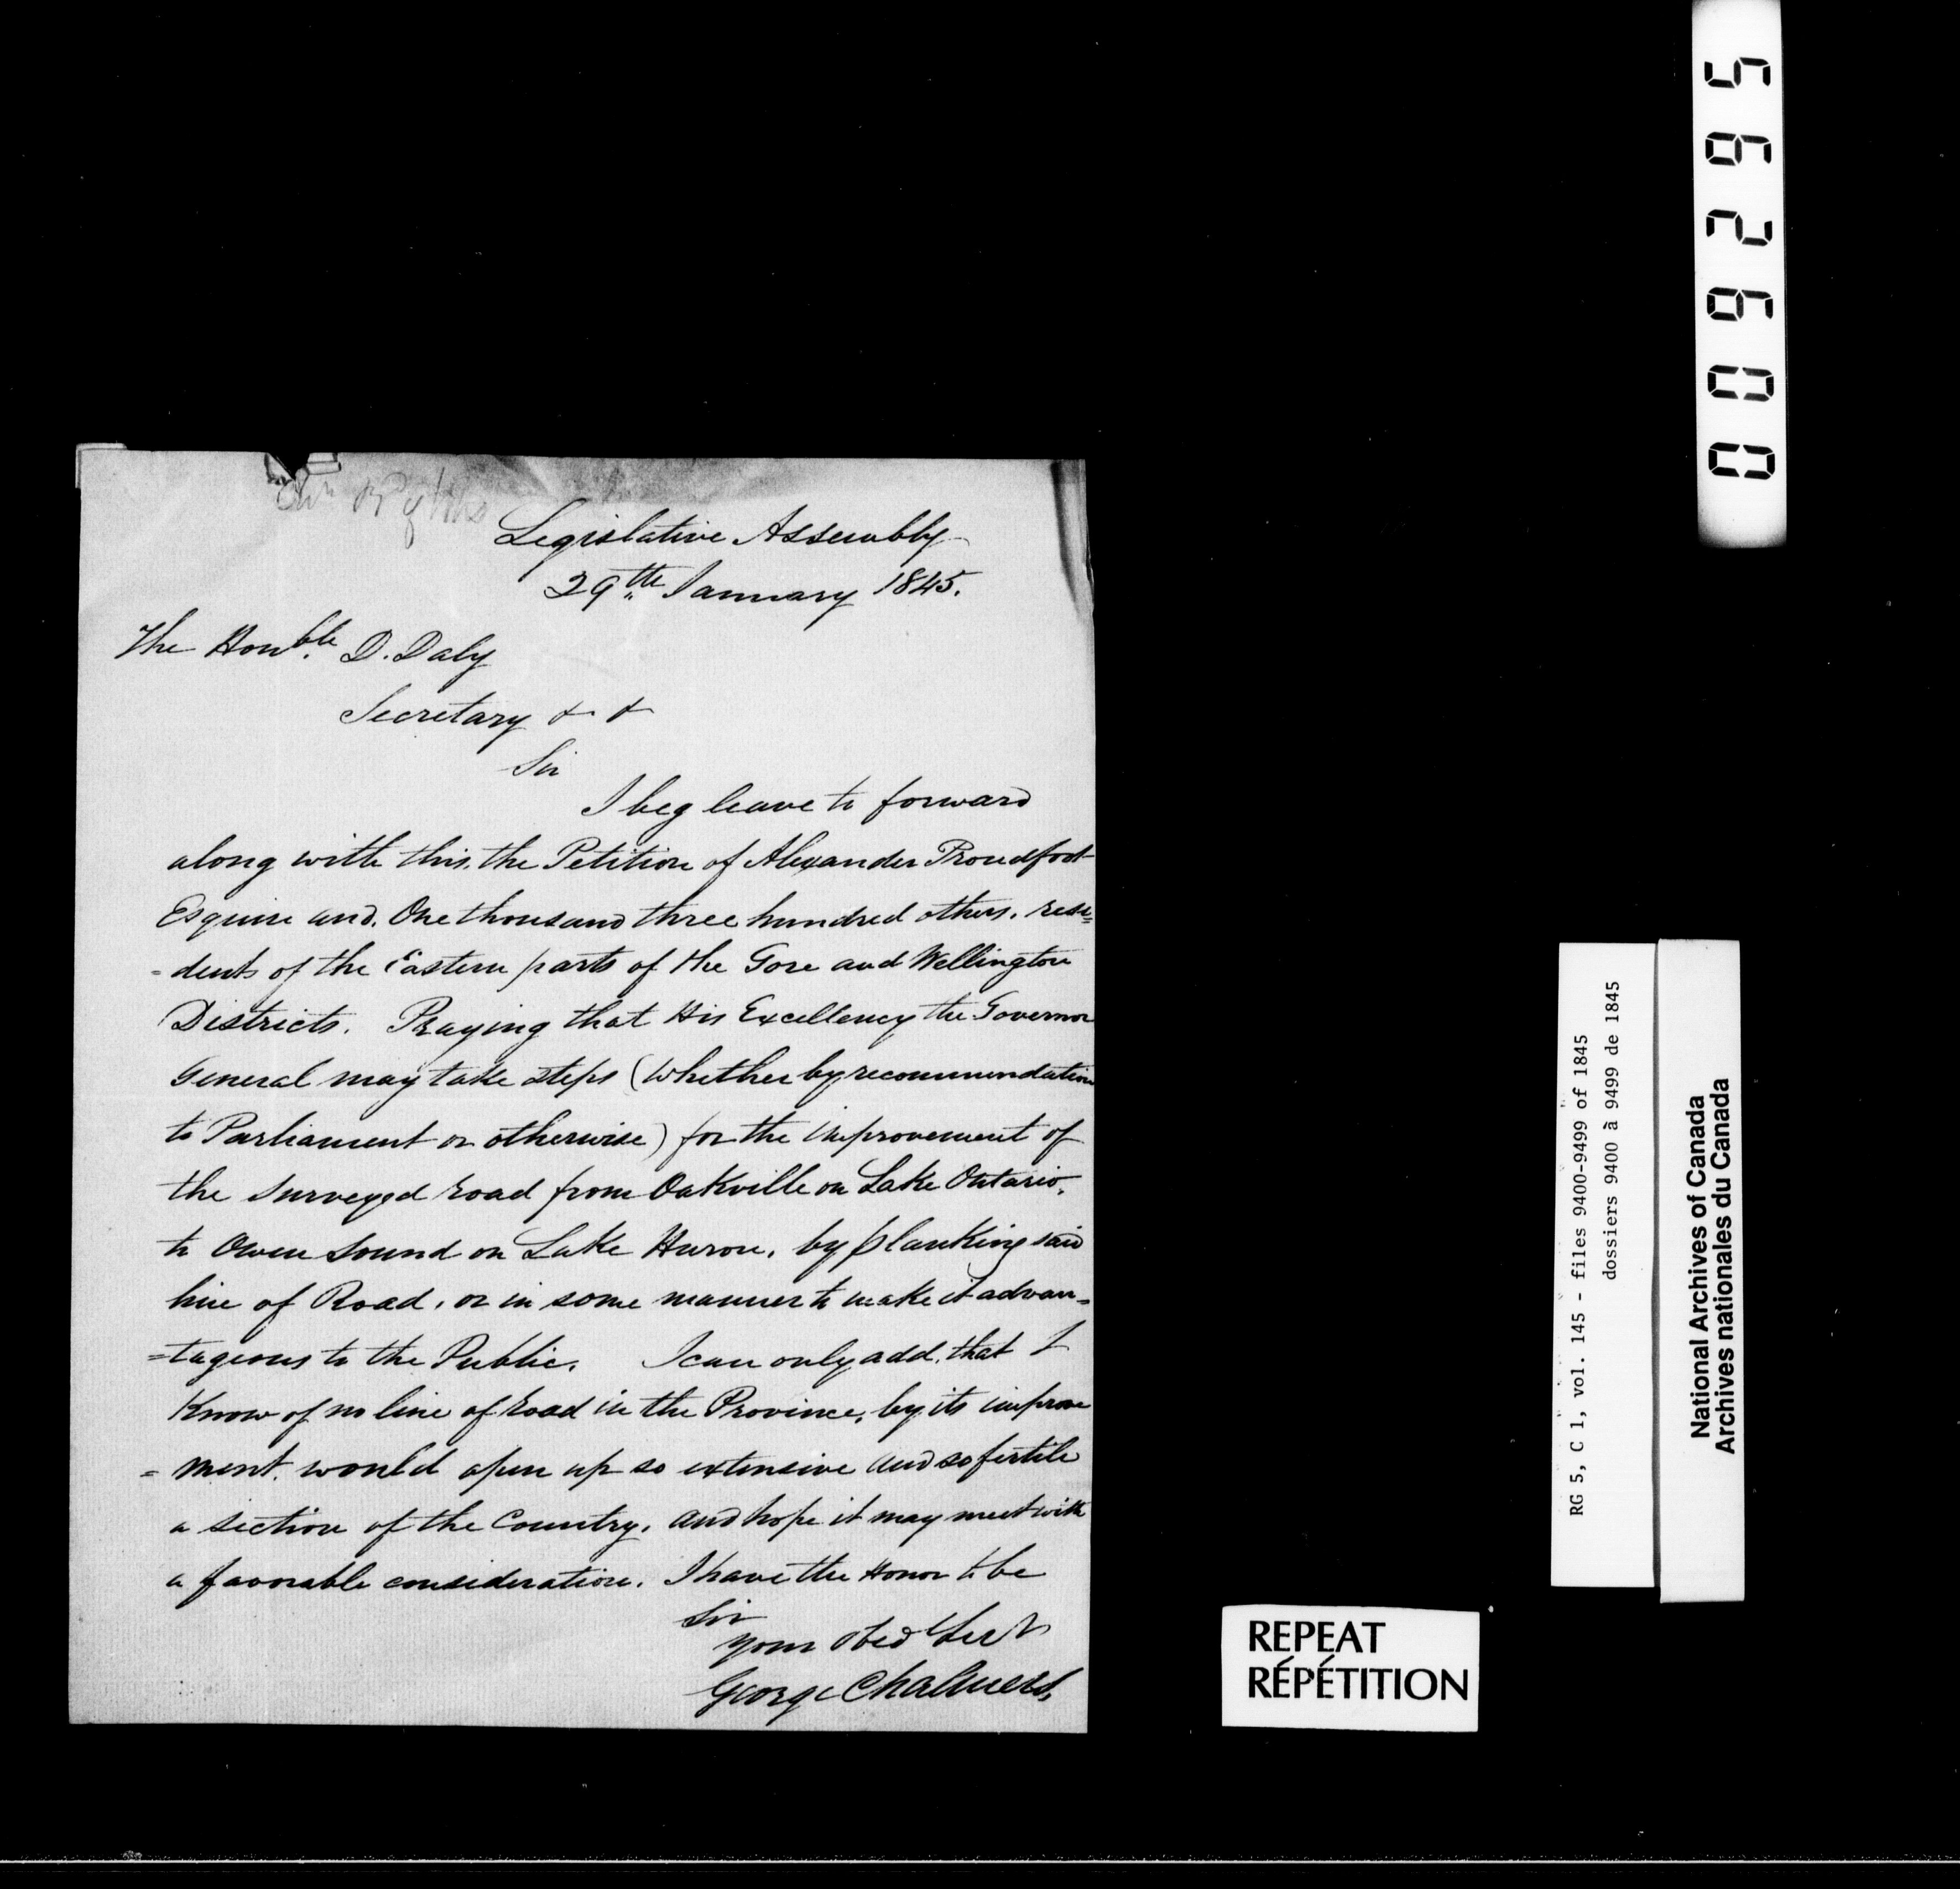 Legislative Assembly
29th January 1845.
The Honble. D. Daly
Secretary & &
Sir
I beg leave to forward
along with this, the Petition of Alexander Proudfoot
Esquire and. One thousand three hundred others. resi=
=dents of the Eastern parts of the Gore and Wellington
Districts. Praying that His Excellency the Governor
General may take steps (whether by recommendation
to Parliament or otherwise) for the improvement of
the surveyed road from Oakville on Lake Ontario,
to Owen Sound on Lake Huron, by planking said
line of Road, or in some manner to make it advan=
=tageous to the Public. I can only add, that I
Know of no line of road in the Province, by its improve
=ment, would open up so extensive and so fertile
a section of the Country, and hope it may meet with
a favorable consideration. I have the Honor to be
Sir
your obed Servt
George Chalmers,
REPEAT
RÉPÉTITION
RG 5, C 1, vol. 145 - files 9400-9499 of 1845
dossiers 9400 à 9499 de 1845
National Archives of Canada
Archives nationales du Canada
0 0 9 2 9 5